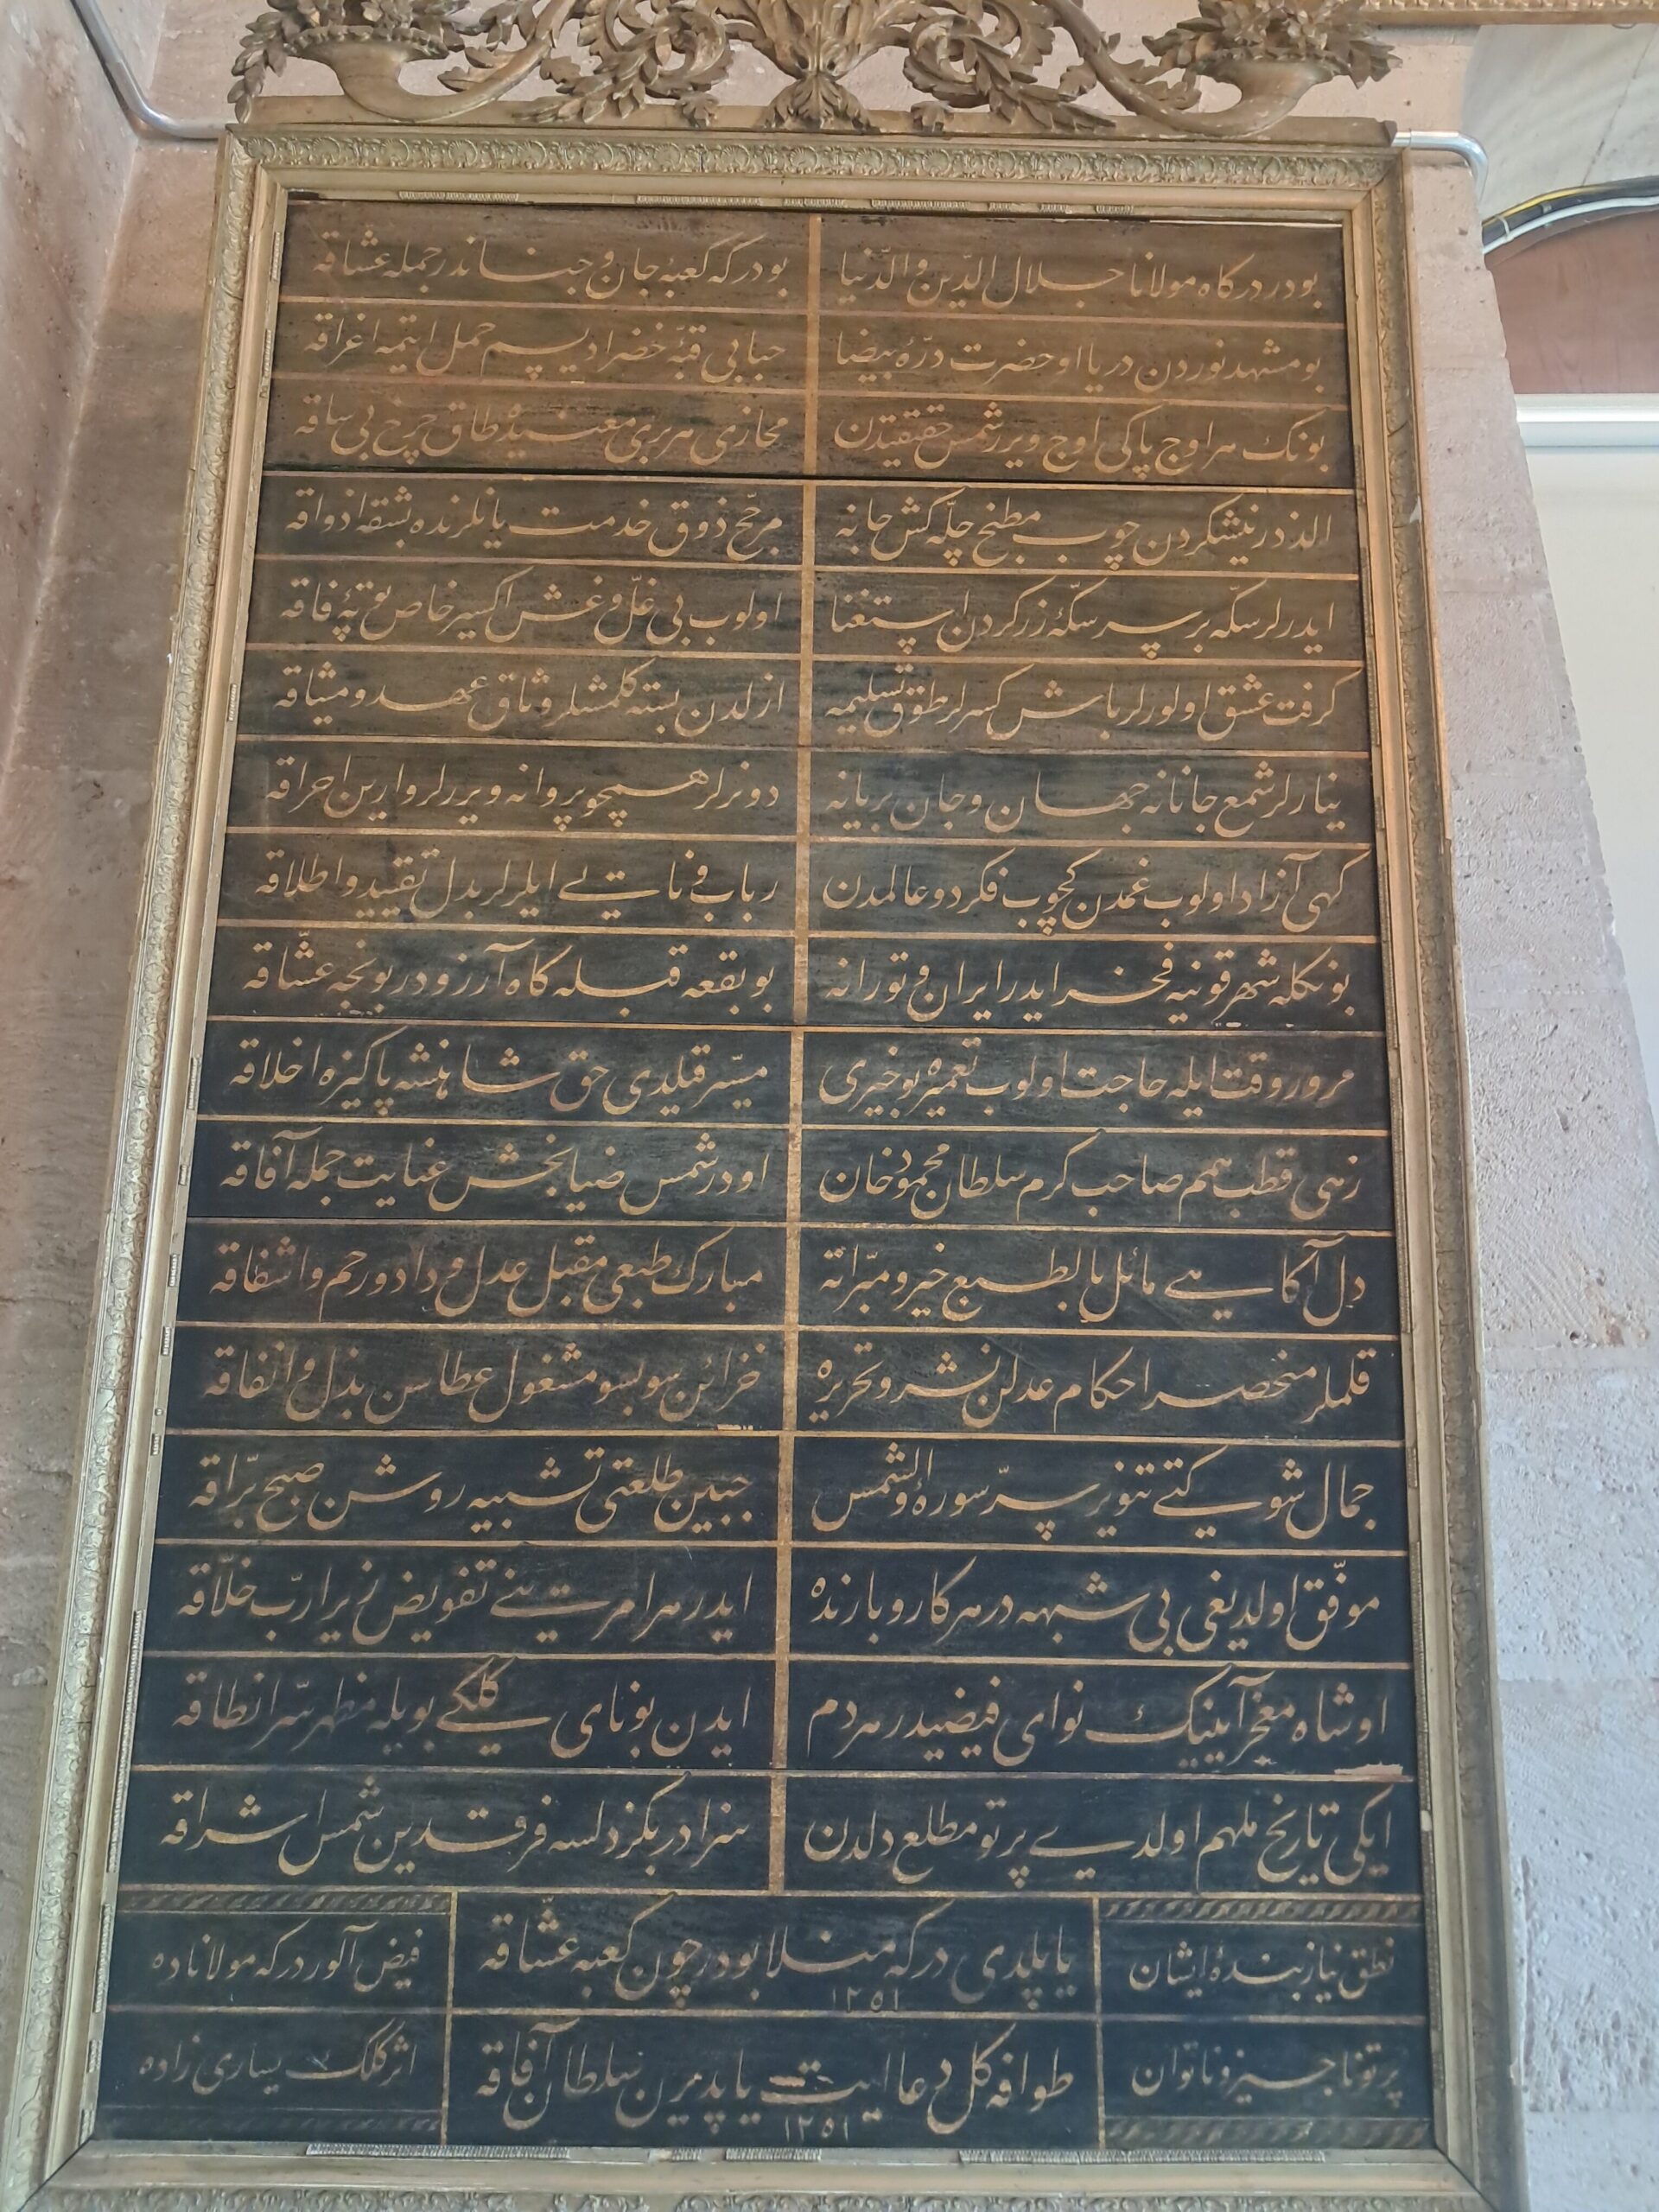 بودر درگاه مولانا جلال الدّین و الدّنیا بو درگه کعبهٔ جان و جناندر جمله عشاقه
بو مشهد نوردن دریا او حضرت درّهٔ بیضا حبابی قبّهٔ خضرا دیسم حمل ایتمه اغراقه
بونك هر اوج پاکی اوج ویرر شمس حقیقیدن مجازی هر بری معنیده طاق چرخ بی ساقه
الذدر نیشکردن چوب مطبخ چلّه کش جانه مرجّح ذوق خدمت یانلرنده بشقه اذواقه
ایدرلر سکّه بر سر سکّهٔ زرکردن استغنا اولوب بی غلّ و غش اکسیر خاص بوتهٔ فاقه
گرفت عشق اولورلر باش کسرلر طوق تسلیمه ازلدن بسته کلمشلر وثاق عهد و میثاقه
ینارلر شمع جانانه جهان و جان بریانه دونرلر همچو پروانه ویررلر وارین احراقه
کهی آزاد اولوب غمدن کچوب فکر دو عالمدن رباب و نایی ایلرلر بدل تقیید و اطلاقه
بونکله شهر قونیه فخر ایدر ایران و تورانه بو بقعه قبله کاه آرزودر بونجه عشّاقه
مرور وقت ایله حاجت اولوب تعمیره بو خیری میسّر قیلدی حق شاهنشه پاکیزه اخلاقه
زهی قطب همم صاحب کرم سلطان محمود خان اودر شمس ضیابخش عنایت جمله آفاقه
دل آکاهی مائل بالطبع خیر و مبرّاته مبارك طبعی مقبل عدل و داد و رحم و اشفاقه
قلملر منحصر احکام عدلن نشر و تحریره خزائن سوبسو مشغول عطاسن بذل و انفاقه
جمال شوکتی تنویر سر سورهٔ والشمس جبین طلعتی تشبیه روشن صبح برّاقه
موفّق اولدیغی بی شبهه در هر کار و بارنده ایدر هر امرینی تفویض زیرا ربّ خلّاقه
او شاه معجز آیینك نوای فیضیدر هر دم ایدن بو نای کلکی بویله مظهر سرّ انطاقه
ایکی تاریخ ملهم اولدی پرتو مطلع دلدن سزادر بکزدلسه فرقدین شمس اشراقه
نطق نیازبندهٔ ایشان یاپلدی درگه منلا بودر چون کعبه عشّاقه ١٢٥١ فیض آلور درگه مولاناده
پرتو ناچیز و ناتوان طوافه کل دعا ایت یاپدیرن سلطان آفاقه ١٢٥١ اثر کلك یساری زاده